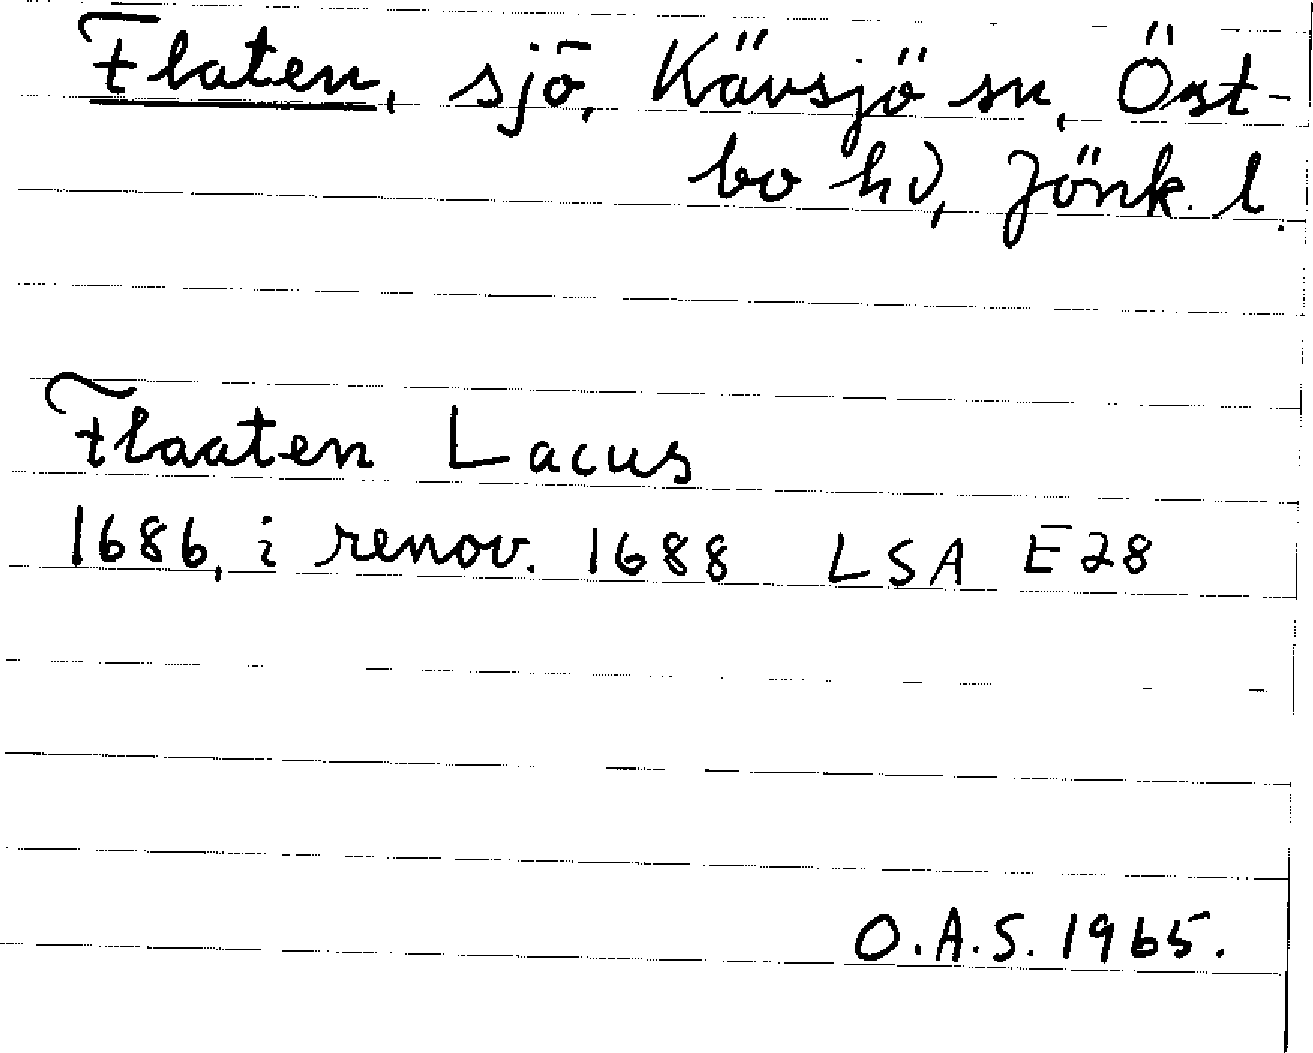 Flaten, sjö, Kävsjö sn, Öst-
bo hd, Jönk. l.
Flaaten Lacus
1686, i renov. 1688 LSA E28
O.A.S. 1965.